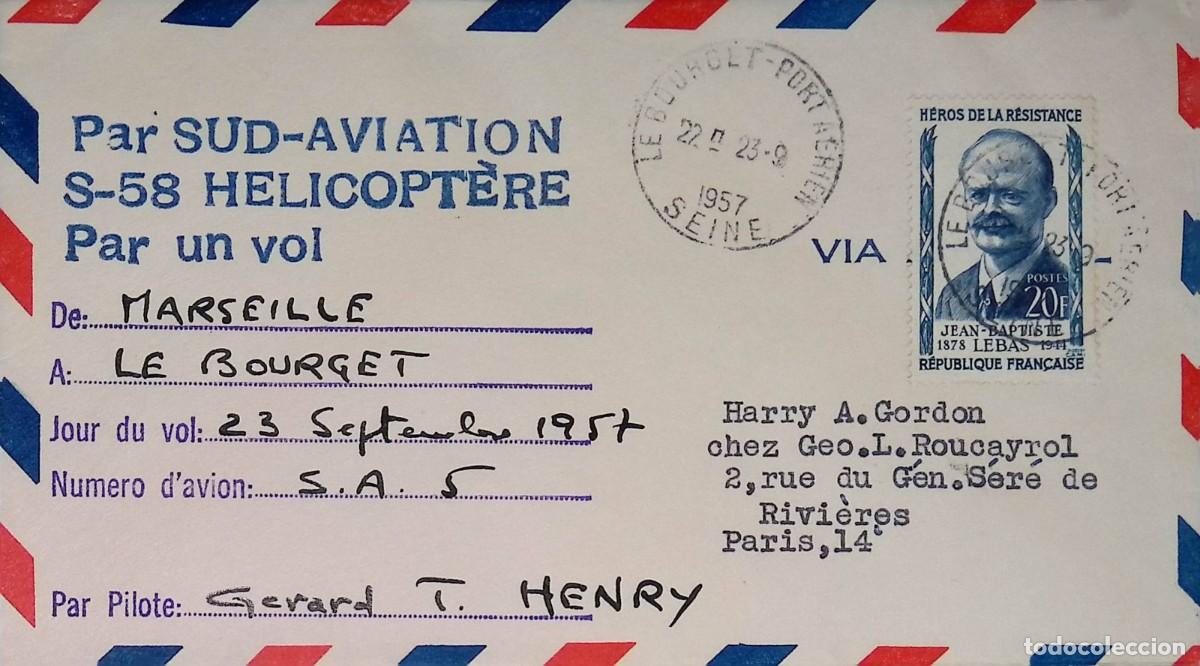 Par SUD-AVIATION
S-58 HELICOPTÈRE
Par un vol
De: MARSEILLE
A: LE BOURGET
Jour du vol: 23 Septembre 1957
Numero d'avion: S.A. 5
Par Pilote: Gerard T. HENRY
LE BOURGET-PORT AERIEN
22 H 23-9
1957
SEINE
VIA
HÉROS DE LA RÉSISTANCE
POSTES
20F
JEAN-BAPTISTE
1878 LEBAS 1944
RÉPUBLIQUE FRANÇAISE
Harry A.Gordon
chez Geo.L.Roucayrol
2,rue du Gén.Séré de
Rivières
Paris,14e
todocoleccion